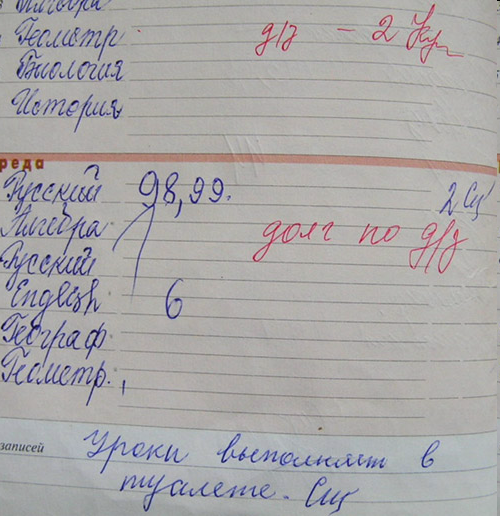 Алгебра
Геометр д/з - 2
Биология
История
реда
Русский 98,99. 2 Сщ
Алгебра долг по д/з
Русский
English 6
Географ
Геометр.
записей Уроки выполняет в
туалете. Сщ